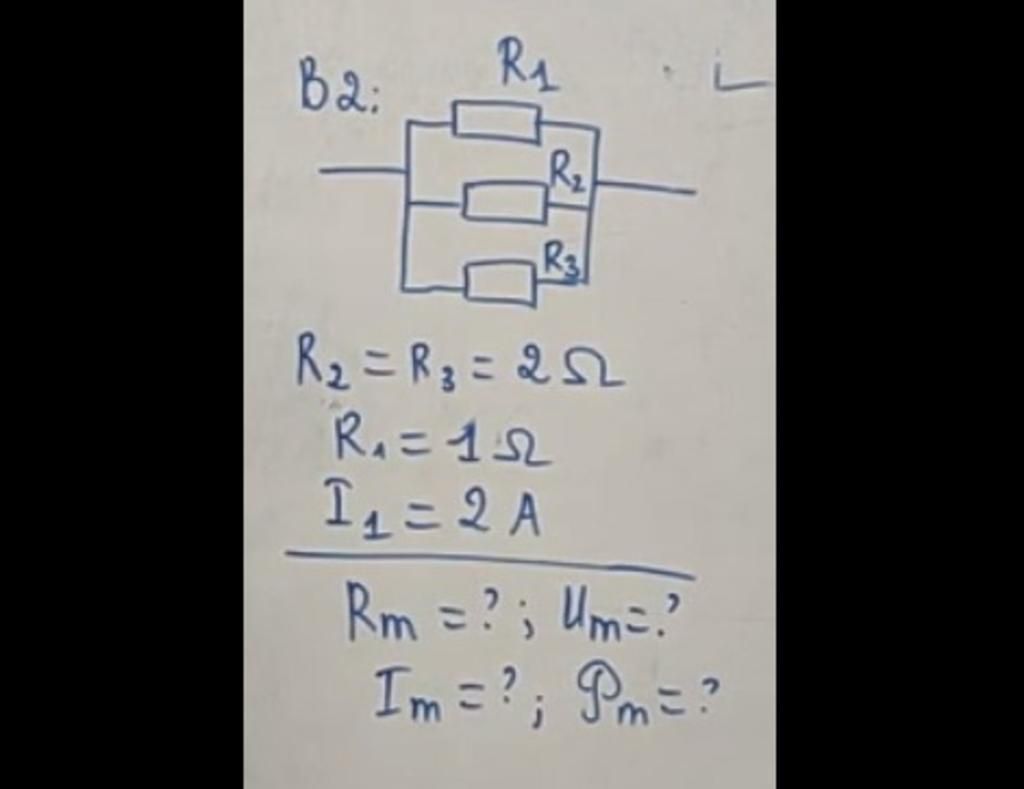 B2:
R1
R2
R3
R2 = R3 = 2 Ω
R1 = 1 Ω
I1 = 2 A
Rm = ? ; Um = ?
Im = ? ; Pm = ?